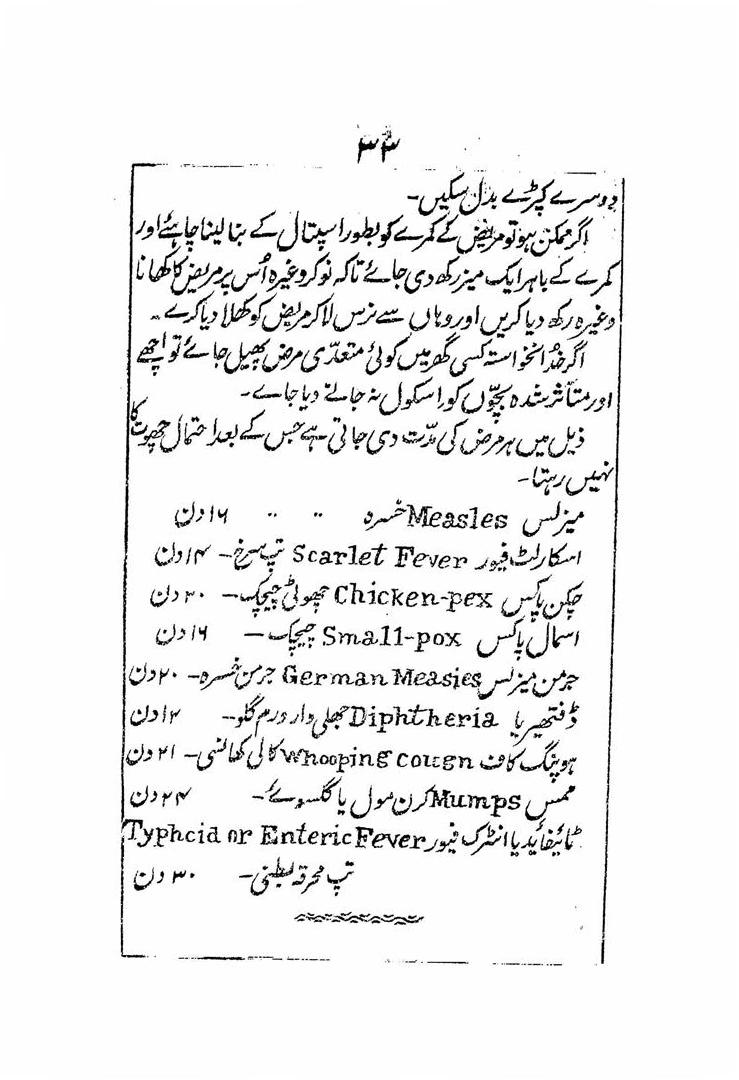 ۳۳
دوسرے کپڑے بدل سکیں۔
اگر ممکن ہو تو مریض کے کمرے کو بطور اسپتال کے بنا لینا چاہئے اور
کمرے کے باہر ایک میز رکھ دی جائے تاکہ نوکر وغیرہ اُس پر مریض کا کھانا
وغیرہ رکھ دیا کریں اور وہاں سے نرس لا کر مریض کو کھلا دیا کرے۔
اگر خدانخواستہ کسی گھر میں کوئی متعدّی مرض پھیل جائے تو اچھے
اور متأثر شدہ بچّوں کو اِسکول نہ جانے دیا جاے۔
ذیل میں ہر مرض کی مدّت دی جاتی ہے جس کے بعد احتمال چھوت کا
نہیں رہتا۔
میزلس Measles خسرہ ۱۶ دن
اسکارلٹ فیور Scarlet Fever تپ سرخ۔ ۱۴ دن
چکن پاکس Chicken-pex چھوٹی چیچک۔ ۳۰ دن
اسمال پاکس Small-pox چیچک — ۱۶ دن
جرمن میزلس German Measies جرمن خسرہ۔ ۲۰ دن
ڈفتھیریا Diphtheria جھلی دار ورم گلو۔ ۱۲ دن
ہوپنگ کاف Whooping cougn کالی کھانسی۔ ۲۱ دن
ممس Mumps کرن مول یا گلسوئے۔ ۲۴ دن
ٹائیفائیڈ یا انٹرک فیور Typhcid or Enteric Fever
تپ محرقہ بطنی۔ ۳۰ دن